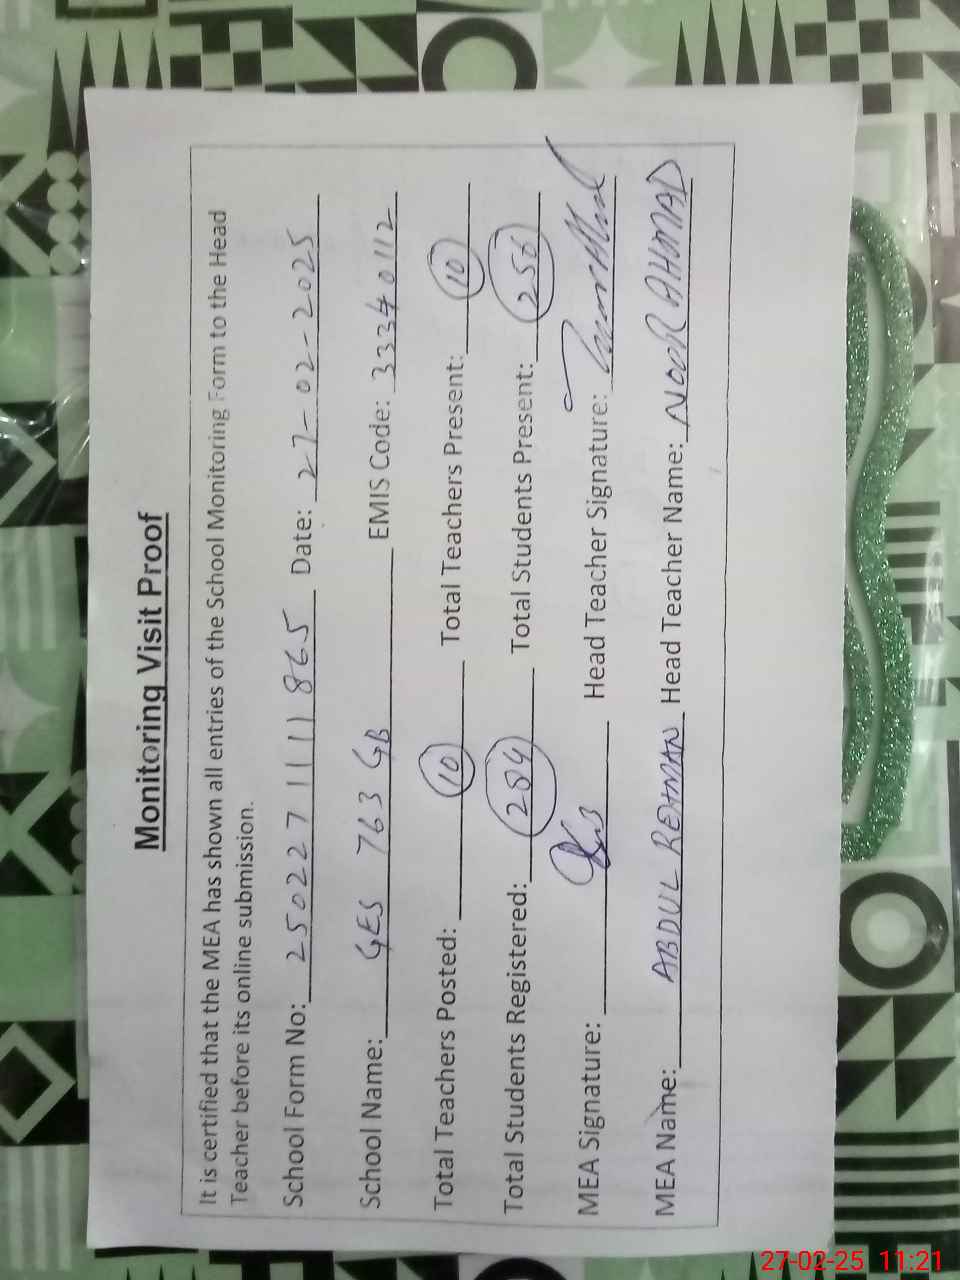 Monitoring Visit Proof
It is certified that the MEA has shown all entries of the School Monitoring Form to the Head
Teacher before its online submission.
School Form No: 250227 1111 865 Date: 27-02-2025
School Name: GES 763 GB EMIS Code: 33340112
Total Teachers Posted: 10 Total Teachers Present: 10
Total Students Registered: 284 Total Students Present: 256
MEA Signature: Head Teacher Signature:
MEA Name: ABDUL REHMAN Head Teacher Name: NOOR AHMAD
27-02-25 11:21